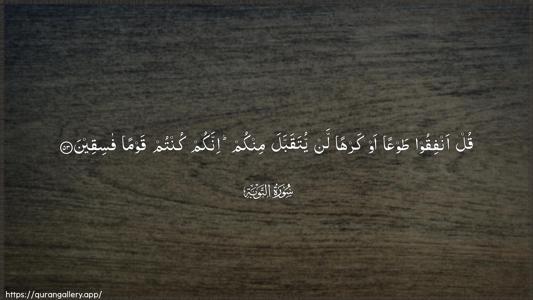 قُلْ اَنْفِقُوْا طَوْعًا اَوْ كَرْهًا لَّنْ يُّتَقَبَّلَ مِنْكُمْ ؕ اِنَّكُمْ كُنْتُمْ قَوْمًا فٰسِقِيْنَ ۝٥٣
سُوْرَةُ التَّوْبَةِ
https://qurangallery.app/